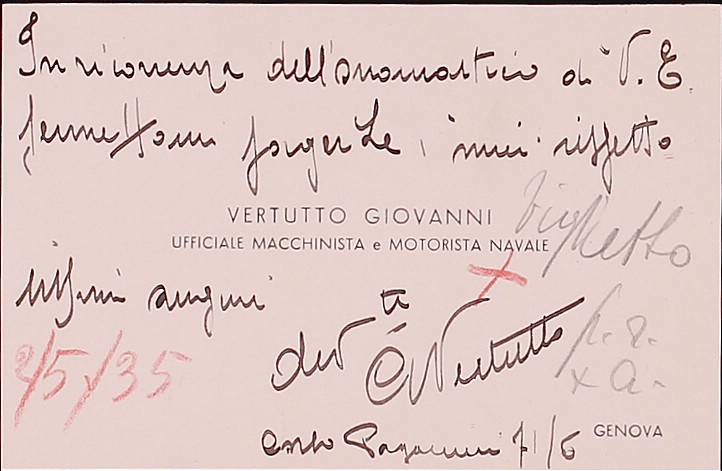 In ricorrenza dell'onomastico di V. E.
permettomi porgerLe i miei rispetto
VERTUTTO GIOVANNI
biglietto
UFFICIALE MACCHINISTA e MOTORISTA NAVALE
sissimi auguri
2/5/35
dev tt
G Vertutto
p. r.
x a.
Corso Paganini 71/6
GENOVA